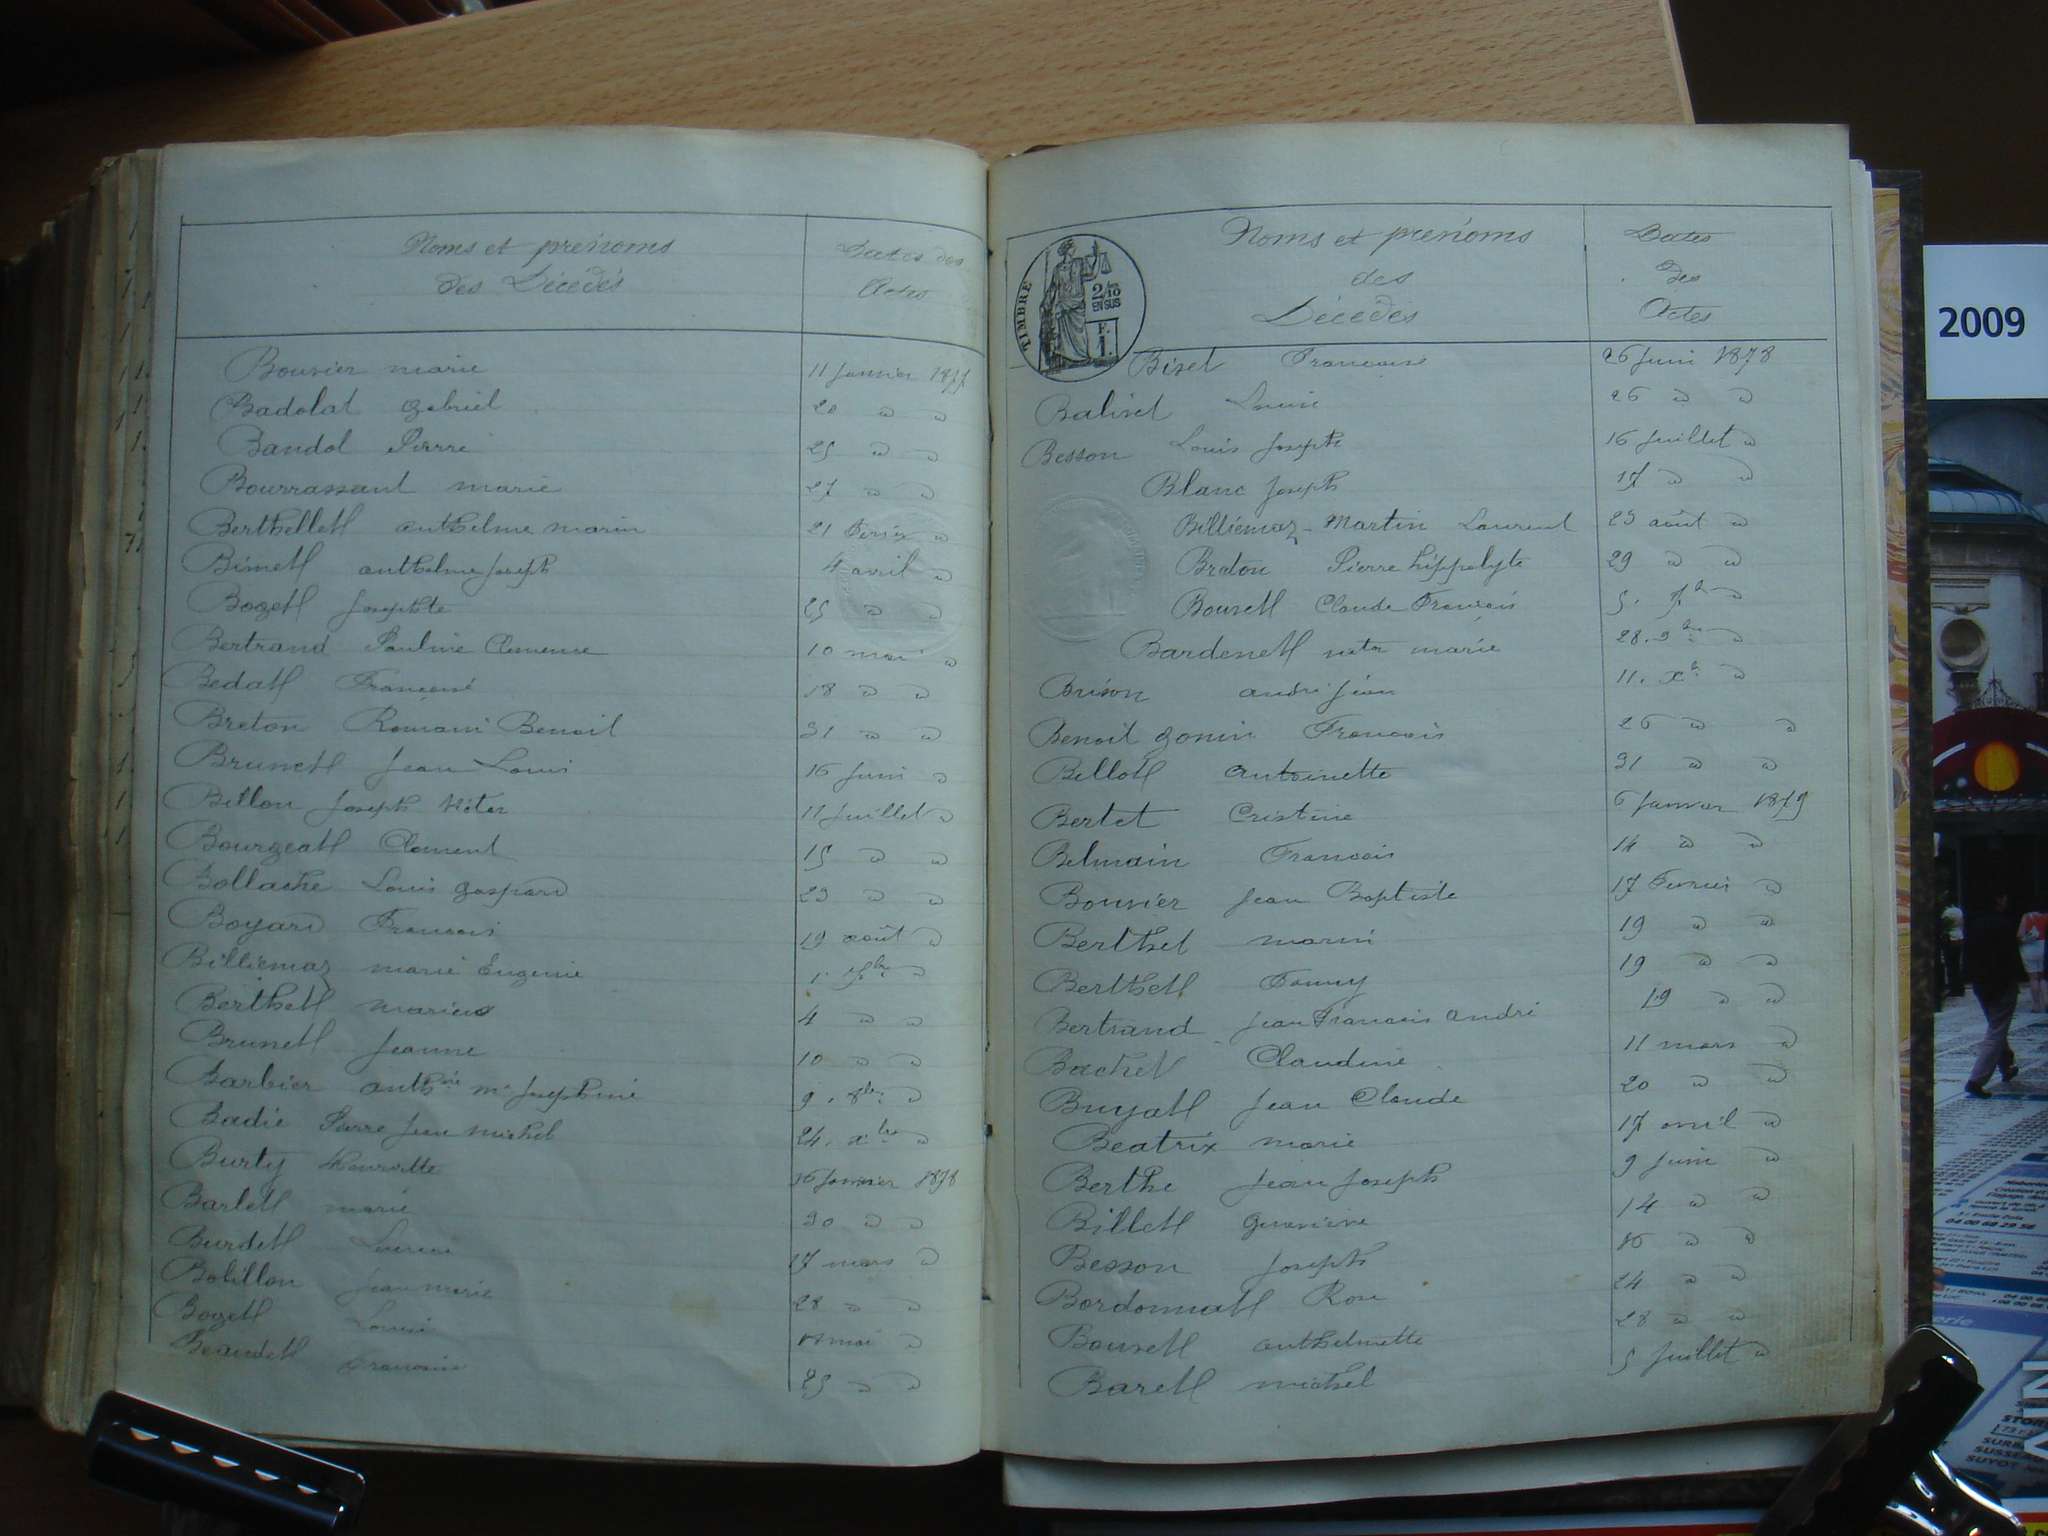 Noms et prénoms
des Décédés
Dates des
Actes
Bouvier marie 11 Janvier 1877
Badolat gabriel 20 " "
Bandol Pierre 25 " "
Bourrassaut marie 27 " "
Berthellett anthelme marin 21 Février "
Bimett anthelme Joseph 4 avril "
Bozett Josephte 25 " "
Bertrand Pauline Clemence 10 mai "
Bedatt 18 " "
Breton Romani Benoit 31 " "
Brunett Jean Louis 16 Juin "
Billon Joseph Victor 11 Juillet "
Bourgeatt Clement 15 " "
Bollache Louis gaspard 23 " "
Boyard François 19 août "
Billiemaz marie Eugenie 1. 7bre "
Berthett marius 4 " "
Brunett Jeanne 10 " "
Barbier anth.ne m.e Josephine 9. 8bre "
Badie Pierre Jean michel 24. xbre "
Burty 16 Janvier 1878
Barlett marie 30 " "
Burdett 17 mars "
Bolillon Jean marie 28 " "
Bozett Louis mai "
Beaudett 25 " "
TIMBRE
2/10
EN SUS
F.
1.
Noms et prénoms
des
Décédés
Dates
des
Actes
Bizet 26 Juin 1878
Balivet Louise 26 " "
Besson Louis Joseph 16 Juillet "
Blanc Joseph 17 " "
Billiemaz-Martin Laurent 23 août "
Breton Pierre hippolyte 29 " "
Bousett Claude François 5. 7b "
Bardenett marie 28. 9bre "
Brison andré Jean 11. xb "
Benoit gonin François 26 " "
Billott antoinette 31 " "
Bertet Cristine 6 Janvier 1879
Belmain François 14 " "
Bouvier Jean Baptiste 17 Fevrier "
Berthet marin 19 " "
Berthett Fanny 19 " "
Bertrand Jean François andré 19 " "
Bachet Claudine 11 mars "
Buyatt Jean Claude 20 " "
Beatrix marie 17 avril "
Berthe Jean Joseph 9 Juin "
Billett genevieve 14 " "
Besson Joseph 16 " "
Bordonnatt Rose 24 " "
Bousett anthelmette 28 " "
Barett michel 5 Juillet "
2009